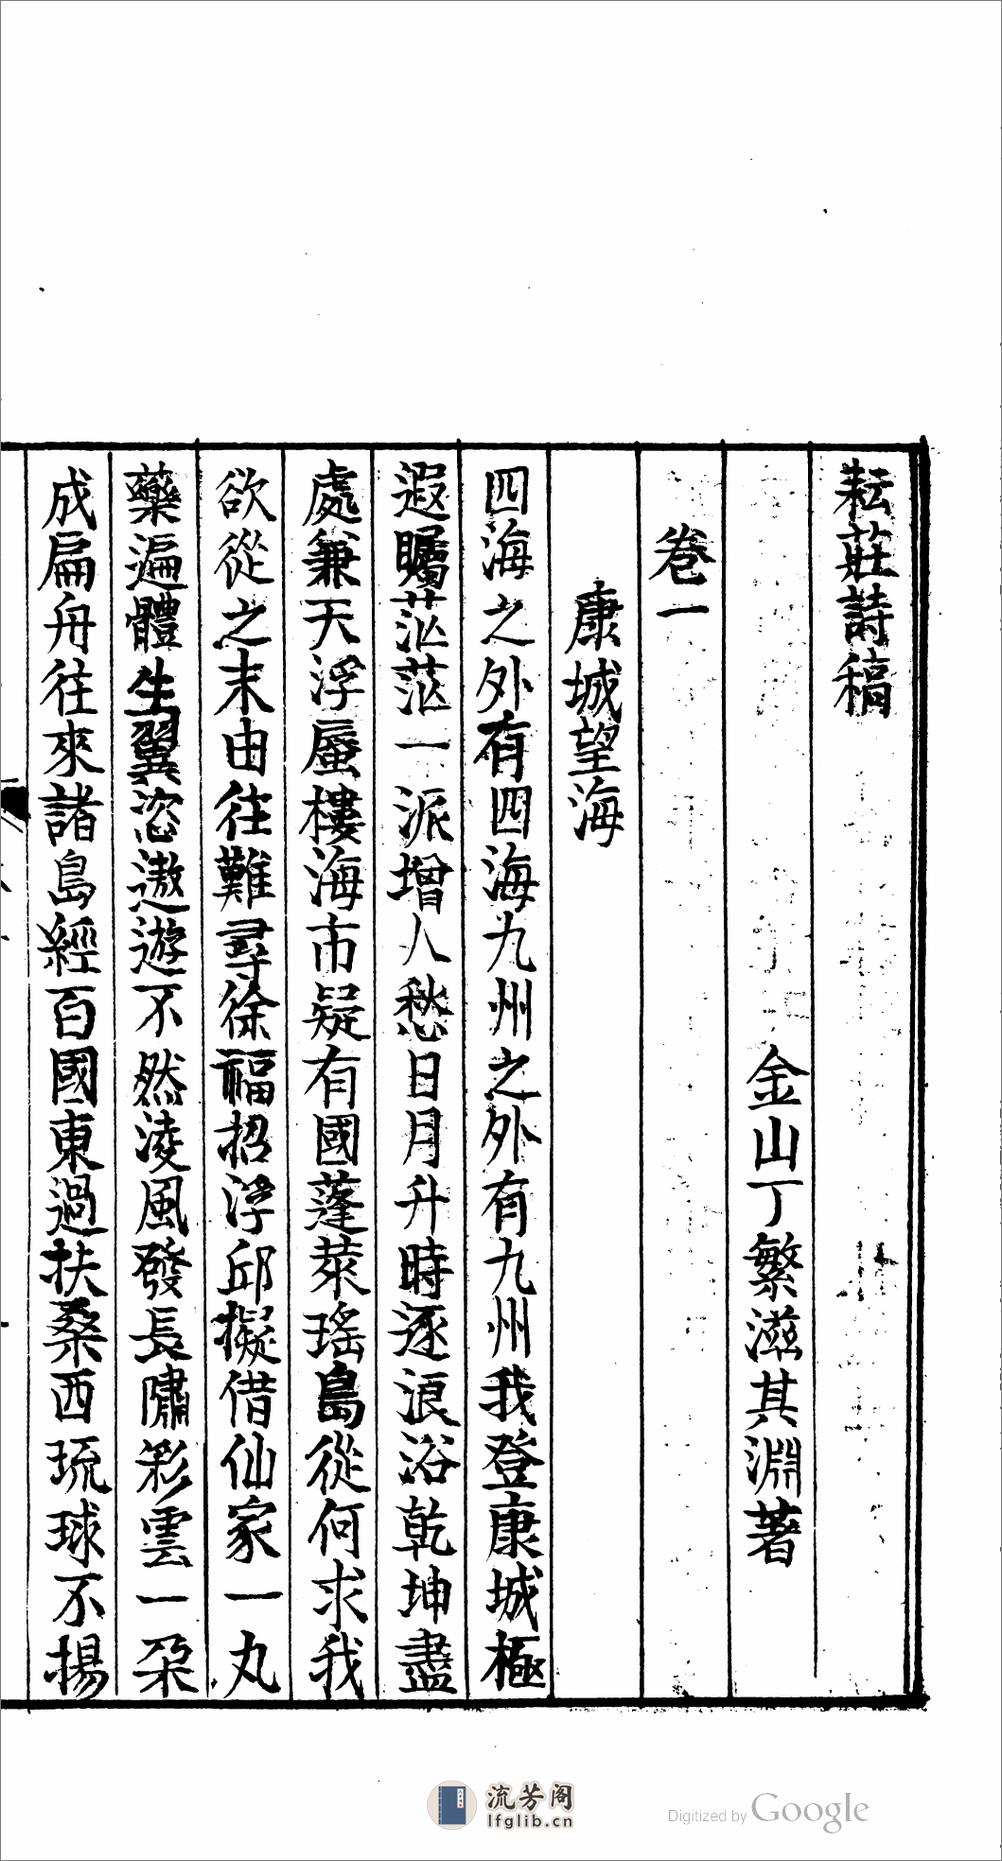 耘莊詩稿
金山丁繁滋其淵著
卷一
康城望海
四海之外有四海九州之外有九州我登康城極
遐矚茫茫一派增人愁日月升時逐浪浴乾坤盡
處兼天浮蜃樓海市疑有國蓬萊瑤島從何求我
欲從之末由往難尋徐福招浮邱擬借仙家一丸
藥遍體生翼恣遨遊不然淩風發長嘯彩雲一朶
成扁舟往來諸島經百國東過扶桑西琉球不揚
流芳阁
lfglib.cn
Digitized by Google